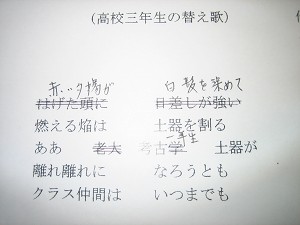 (高校三年生の替え歌)
赤い夕陽が 白髪を染めて
はげた頭に 日差しが強い
燃える焔は 土器を割る
一年生
ああ 老大 考古学 土器が
離れ離れに なろうとも
クラス仲間は いつまでも